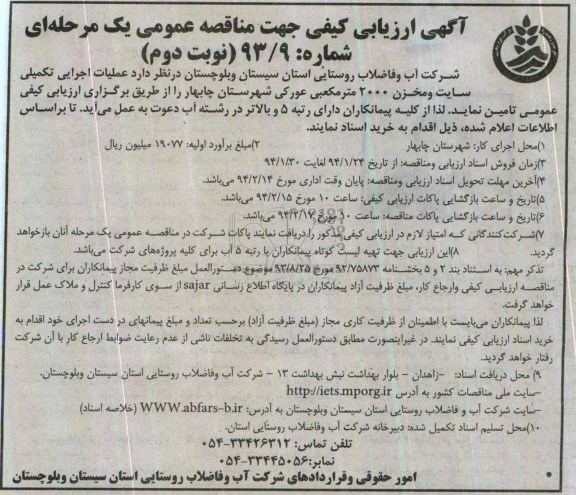 آگهی ارزیابی کیفی جهت مناقصه عمومی یک مرحله‌ای
شماره: ۹۳/۹ (نوبت دوم)
شرکت آب وفاضلاب روستایی استان سیستان وبلوچستان درنظر دارد عملیات اجرایی تکمیلی
سایت ومخزن ۲۰۰۰ مترمکعبی عورکی شهرستان چابهار را از طریق برگزاری ارزیابی کیفی
عمومی تامین نماید. لذا از کلیه پیمانکاران دارای رتبه ۵ و بالاتر در رشته آب دعوت به عمل می‌آید. تا براساس
اطلاعات اعلام شده، ذیل اقدام به خرید اسناد نمایند.
۱)محل اجرای کار: شهرستان چابهار ۲)مبلغ برآورد اولیه: ۱۹۰۷۷ میلیون ریال
۳)زمان فروش اسناد ارزیابی ومناقصه: از تاریخ ۹۴/۱/۲۴ لغایت ۹۴/۱/۳۰
۴)آخرین مهلت تحویل اسناد ارزیابی ومناقصه: پایان وقت اداری مورخ ۹۴/۲/۱۴ می‌باشد.
۵)تاریخ و ساعت بازگشایی پاکات ارزیابی کیفی: ساعت ۱۰ مورخ ۹۴/۲/۱۵ می‌باشد.
۶)تاریخ و ساعت بازگشایی پاکات مناقصه: ساعت ۱۰ مورخ می‌باشد.
۷)شرکت‌کنندگانی که امتیاز لازم در ارزیابی کیفی مذکور را دریافت نمایند پاکات شرکت در مناقصه عمومی یک مرحله آنان بازخواهد
گردید. ۸)این ارزیابی جهت تهیه لیست کوتاه پیمانکاران با رتبه ۵ آب برای کلیه پروژه‌های شرکت می‌باشد.
تذکر مهم: به استناد بند ۲ و ۵ بخشنامه ۹۲/۷۵۸۷۳ مورخ ۹۳/۸/۲۵ موضوع دستورالعمل مبلغ ظرفیت مجاز پیمانکاران برای شرکت در
مناقصه ارزیابی کیفی وارجاع کار، مبلغ ظرفیت آزاد پیمانکاران در پایگاه اطلاع رسانی sajar از سوی کارفرما کنترل و ملاک عمل قرار
خواهد گرفت.
لذا پیمانکاران می‌بایست با اطمینان از ظرفیت کاری مجاز (مبلغ ظرفیت آزاد) برحسب تعداد و مبلغ پیمانهای در دست اجرای خود اقدام به
خرید اسناد ارزیابی کیفی نمایند. در غیراینصورت مطابق دستورالعمل رسیدگی به تخلفات ناشی از عدم رعایت ضوابط ارجاع کار با آن شرکت
رفتار خواهد گردید.
۹) محل دریافت اسناد: -زاهدان - بلوار بهداشت نبش بهداشت ۱۳ - شرکت آب وفاضلاب روستایی استان سیستان وبلوچستان.
-سایت ملی مناقصات کشور به آدرس http://iets.mporg.ir
-سایت شرکت آب و فاضلاب روستایی استان سیستان وبلوچستان به آدرس: WWW.abfars-b.ir (خلاصه اسناد)
۱۰)محل تسلیم اسناد تکمیل شده: دبیرخانه شرکت آب وفاضلاب روستایی استان.
تلفن تماس: ۳۳۴۲۶۳۱۲-۰۵۴
نمابر: ۳۳۴۴۵۰۵۶-۰۵۴
امور حقوقی وقراردادهای شرکت آب وفاضلاب روستایی استان سیستان وبلوچستان